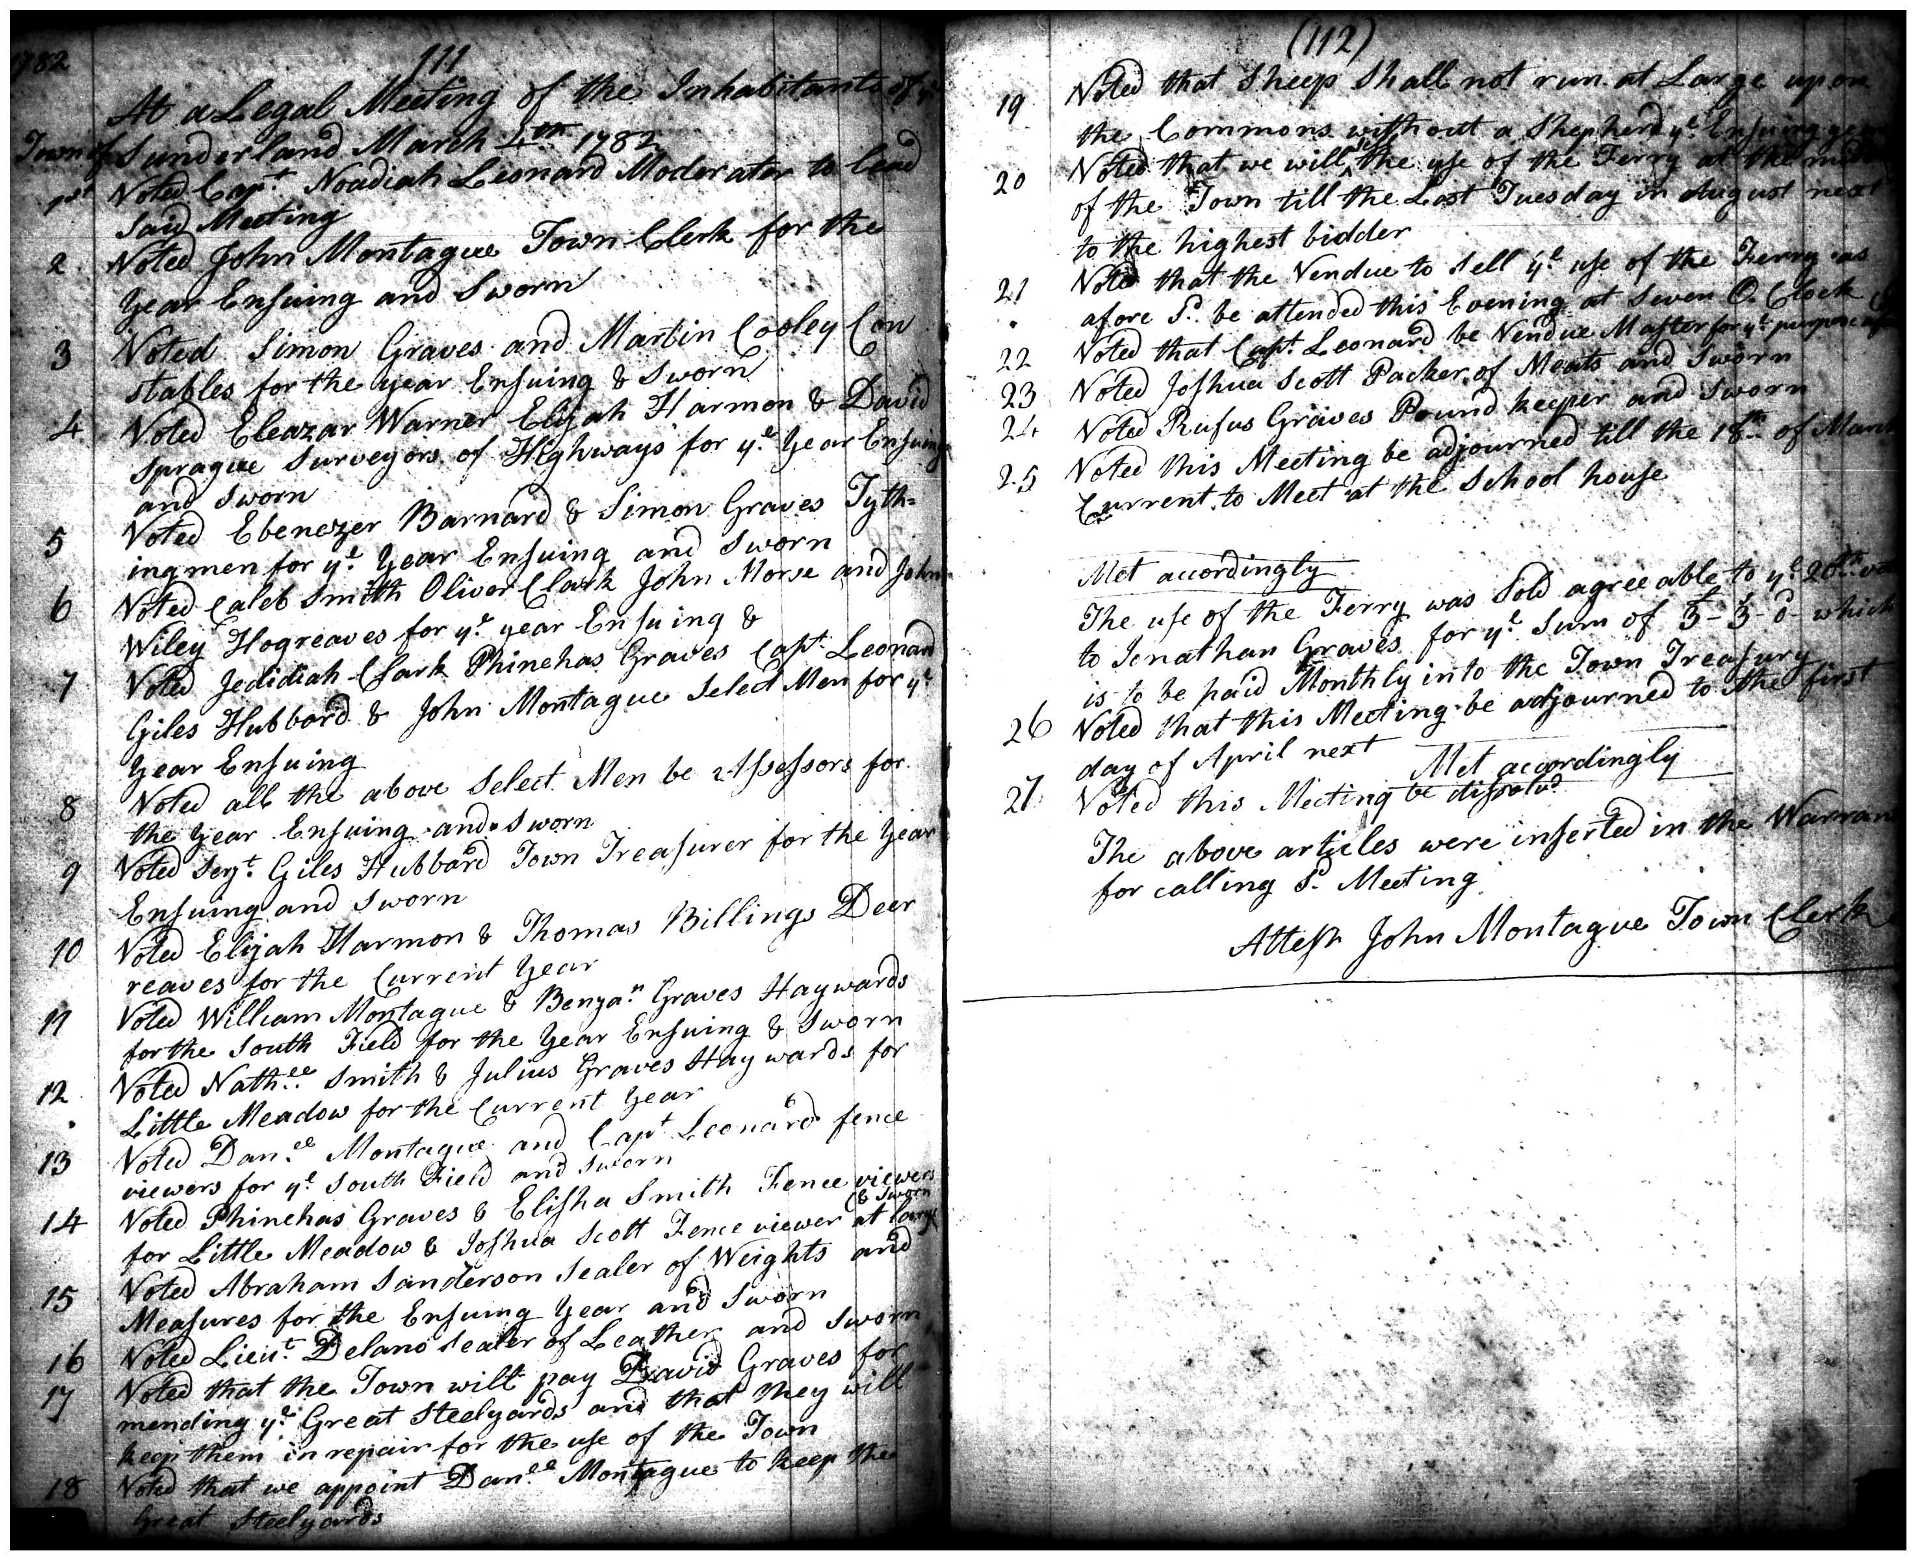 1782
111
At a Legal Meeting of the Inhabitants of ye
Town of Sunderland March 4th 1782
1st Voted Capt. Noadiah Leonard Moderator to lead
said Meeting
2 Voted John Montague Town Clerk for the
Year Ensuing and Sworn
3 Voted Simon Graves and Martin Cooley Con
stables for the year Ensuing & Sworn
4 Voted Eleazar Warner Elijah Harmon & David
Sprague Surveyors of Highways for ye Year Ensuing
and Sworn
5 Voted Ebenezer Barnard & Simon Graves Tyth=
ingmen for ye Year Ensuing and Sworn
6 Voted Caleb Smith Oliver Clark John Morse and John
Wiley Hogreaves for ye year Ensuing &
7 Voted Jedidiah Clark Phinehas Graves Capt. Leonard
Giles Hubbard & John Montague Select Men for ye
Year Ensuing
8 Voted all the above Select Men be Assessors for
the Year Ensuing and Sworn
9 Voted Serjt. Giles Hubbard Town Treasurer for the Year
Ensuing and Sworn
10 Voted Elijah Harmon & Thomas Billings Deer
reaves for the Current Year
11 Voted William Montague & Benjan. Graves Haywards
for the South Field for the Year Ensuing & Sworn
12 Voted Nathll. Smith & Julius Graves Haywards for
Little Meadow for the Current Year
13 Voted Danll. Montague and Capt Leonard fence
viewers for ye South Field and Sworn
14 Voted Phinehas Graves & Elisha Smith Fence viewers
for Little Meadow & Joshua Scott Fence viewer at large
(& Sworn
15 Voted Abraham Sanderson Sealer of Weights and
Measures for the Ensuing Year and Sworn
16 Voted Lieut. Delano Sealer of Leather and Sworn
17 Voted that the Town will pay David Graves for
mending ye Great Steelyards and that they will
keep them in repair for the use of the Town
18 Voted that we appoint Danll. Montague to keep the
Great Steelyards
(112)
19 Voted that Sheep Shall not run at Large upon
the Commons without a Shepherd ye Ensuing year
20 Voted that we will the use of the Ferry at the
of the Town till the Last Tuesday in August next
to the highest bidder
21 Voted that the Vendue to Sell ye use of the Ferry as
afore Sd. be attended this Evening at Seven O. Clock
22 Voted that Capt. Leonard be Vendue Master for ye purpose
23 Voted Joshua Scott Packer of Meats and Sworn
24 Voted Rufus Graves Pound keeper and Sworn
25 Voted this Meeting be adjourned till the 18th of March
Current to Meet at the School house
Met accordingly
The use of the Ferry was Sold agreeable to ye 20th
to Jonathan Graves for ye Sum of 3-3-0 which
is to be paid Monthly into the Town Treasury
26 Voted that this Meeting be adjourned to the first
day of April next
Met accordingly
27 Voted this Meeting be dissolvd
The above articles were inserted in the Warrant
for calling Sd. Meeting
Attest John Montague Town Clerk